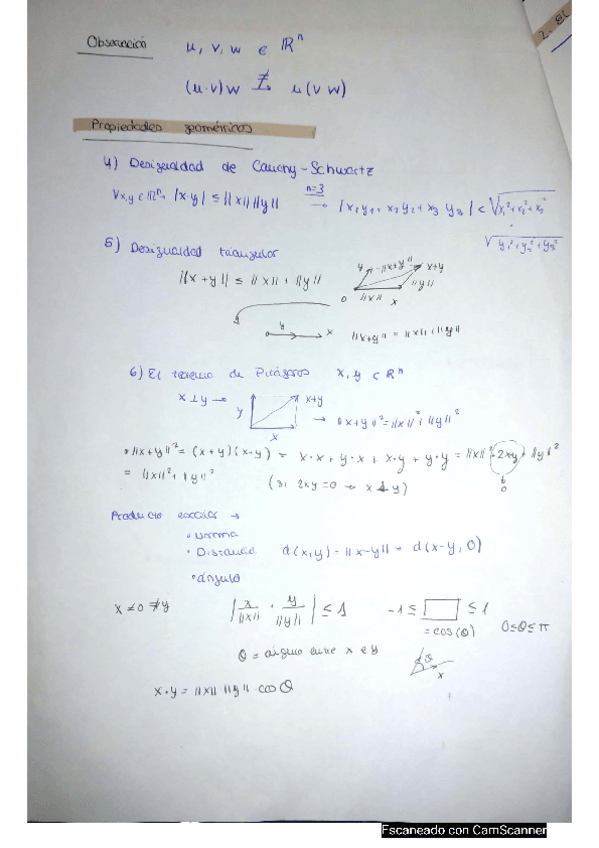 2. El
Observación u, v, w ∈ ℝⁿ
(u·v)w ≠ u(v w)
Propiedades geométricas
4) Desigualdad de Cauchy-Schwartz
∀x,y ∈ ℝⁿ, |x·y| ≤ ||x|| ||y|| n=3 → |x₁y₁ + x₂y₂ + x₃y₃| < √x₁²+x₂²+x₃² ·
√y₁²+y₂²+y₃²
5) Desigualdad triangular
||x+y|| ≤ ||x|| + ||y|| y ||x+y|| x+y ||y|| 0 ||x|| x
y x ||x+y|| = ||x|| + ||y||
6) El teorema de Pitágoras x, y ∈ ℝⁿ
x ⊥ y → y x+y x → ||x+y||² = ||x||² + ||y||²
||x+y||² = (x+y)(x·y) = x·x + y·x + x·y + y·y = ||x||² + 2xy + ||y||²
= ||x||² + ||y||² (si 2xy = 0 → x ⊥ y) 0
Producto escalar →
• norma
• Distancia d(x,y) = ||x-y|| = d(x-y, 0)
• ángulo
x ≠ 0 ≠ y |x/||x|| · y/||y||| ≤ 1 -1 ≤ □ ≤ 1
= cos(θ) 0 ≤ θ ≤ π
θ = ángulo entre x e y θ x
x·y = ||x||·||y||·cos θ
Escaneado con CamScanner